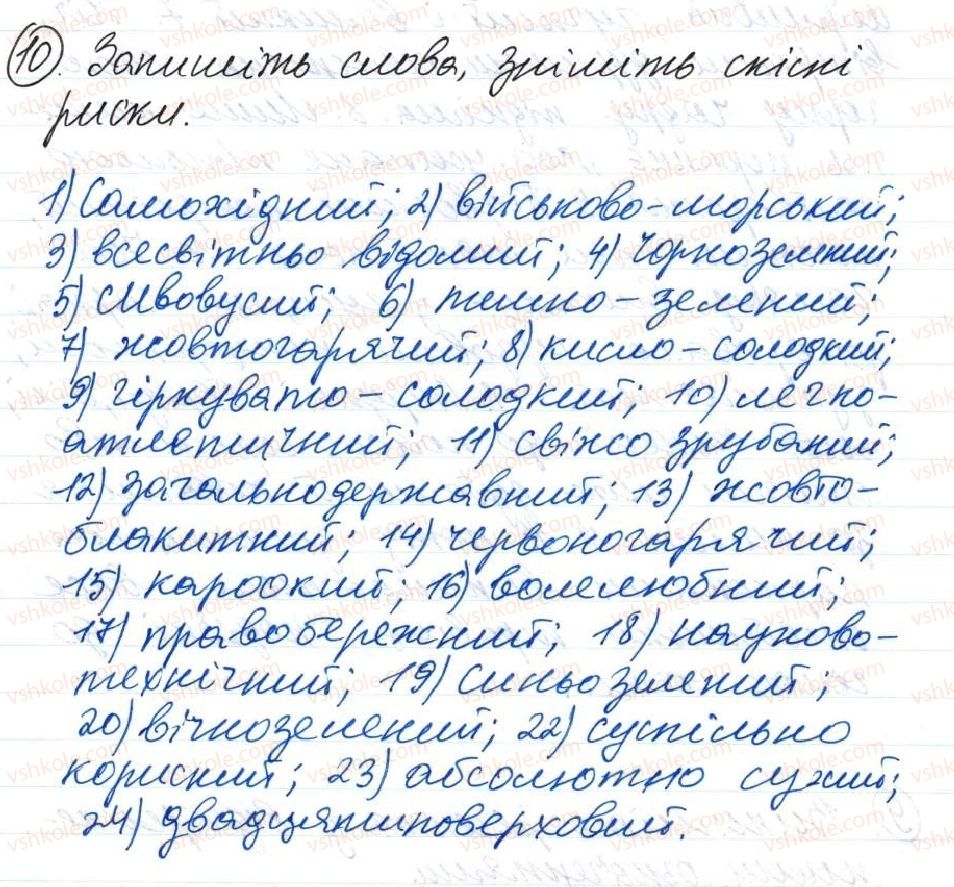 10. Запишіть слова, зніміть скісні
риски.
1) Самохідний; 2) військово-морський;
3) всесвітньо відомий; 4) чорноземний;
5) сивовусий; 6) темно-зелений;
7) жовтогарячий; 8) кисло-солодкий;
9) гіркувато-солодкий; 10) легко-
атлетичний; 11) свіжо зрубаний;
12) загальнодержавний; 13) жовто-
блакитний; 14) червоногарячий;
15) кароокий; 16) волелюбний;
17) правобережний; 18) науково-
технічний; 19) синьозелений;
20) вічнозелений; 22) суспільно
корисний; 23) абсолютно сухий;
24) двадцятиповерховий.